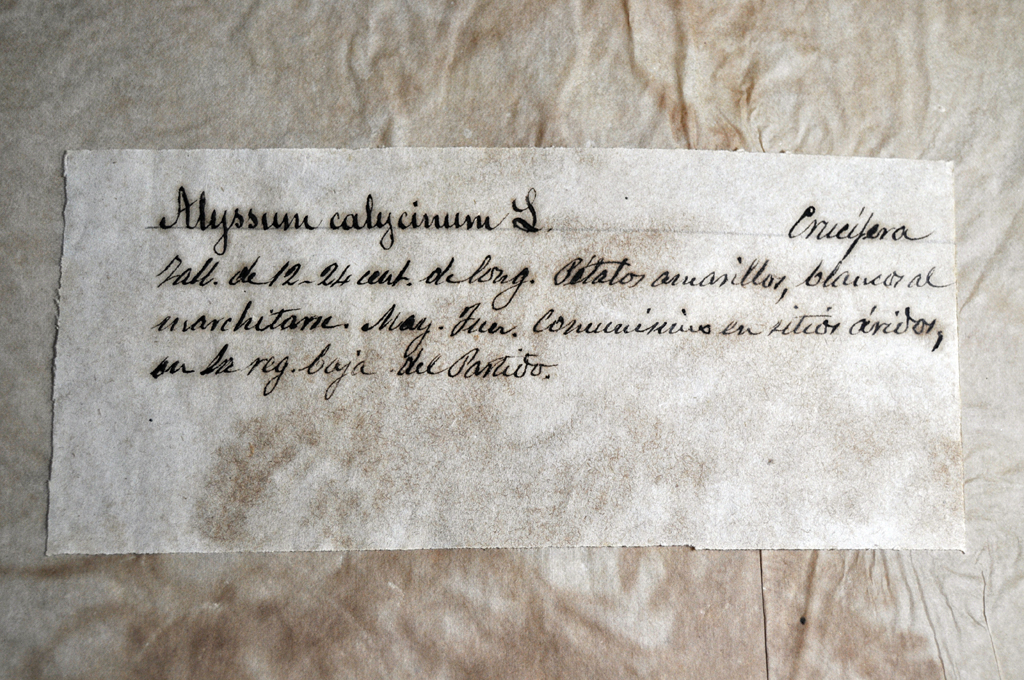 Alyssum calycinum L. Crucífera
Tall. de 12-24 cent. de long. Pétalos amarillos, blancos al
marchitarse. May. Jun. Comunísimo en sitios áridos,
en la reg. baja del Partido.